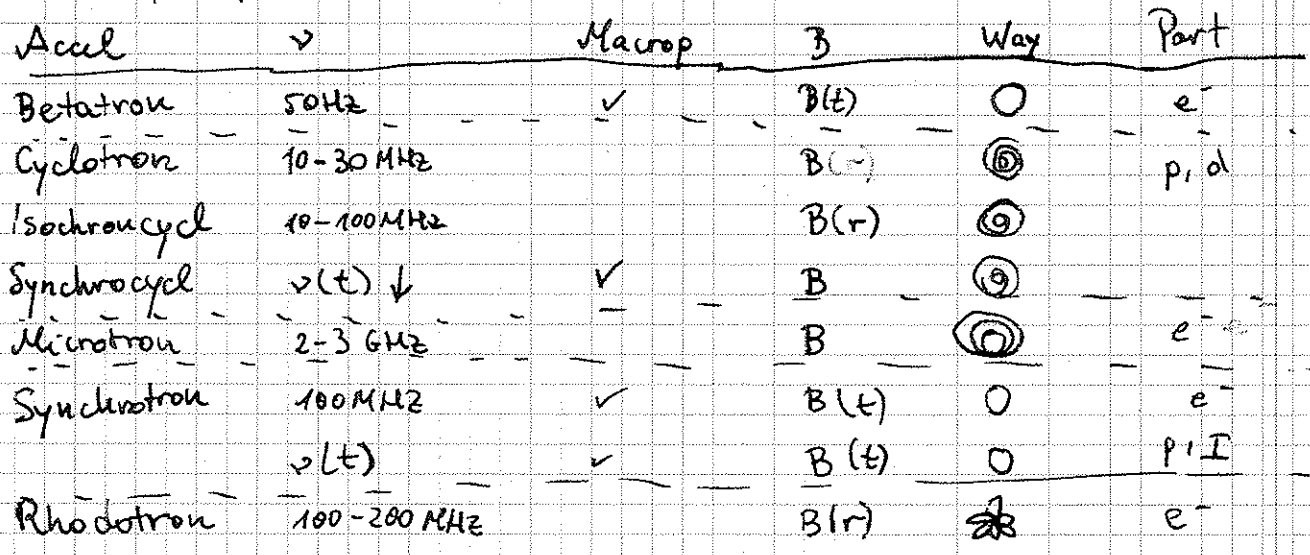 Accel ν Macrop B Way Part
Betatron 50Hz ✓ B(t) e⁻
Cyclotron 10-30 MHz B p, d
Isochroncycl 10-100MHz B(r)
Synchrocycl ν(t) ↓ ✓ B
Microtron 2-3 GHz B e⁻
Synchrotron 100MHZ ✓ B(t) e⁻
ν(t) ✓ B (t) p, I
Rhodotron 100-200 MHZ B(r) e⁻